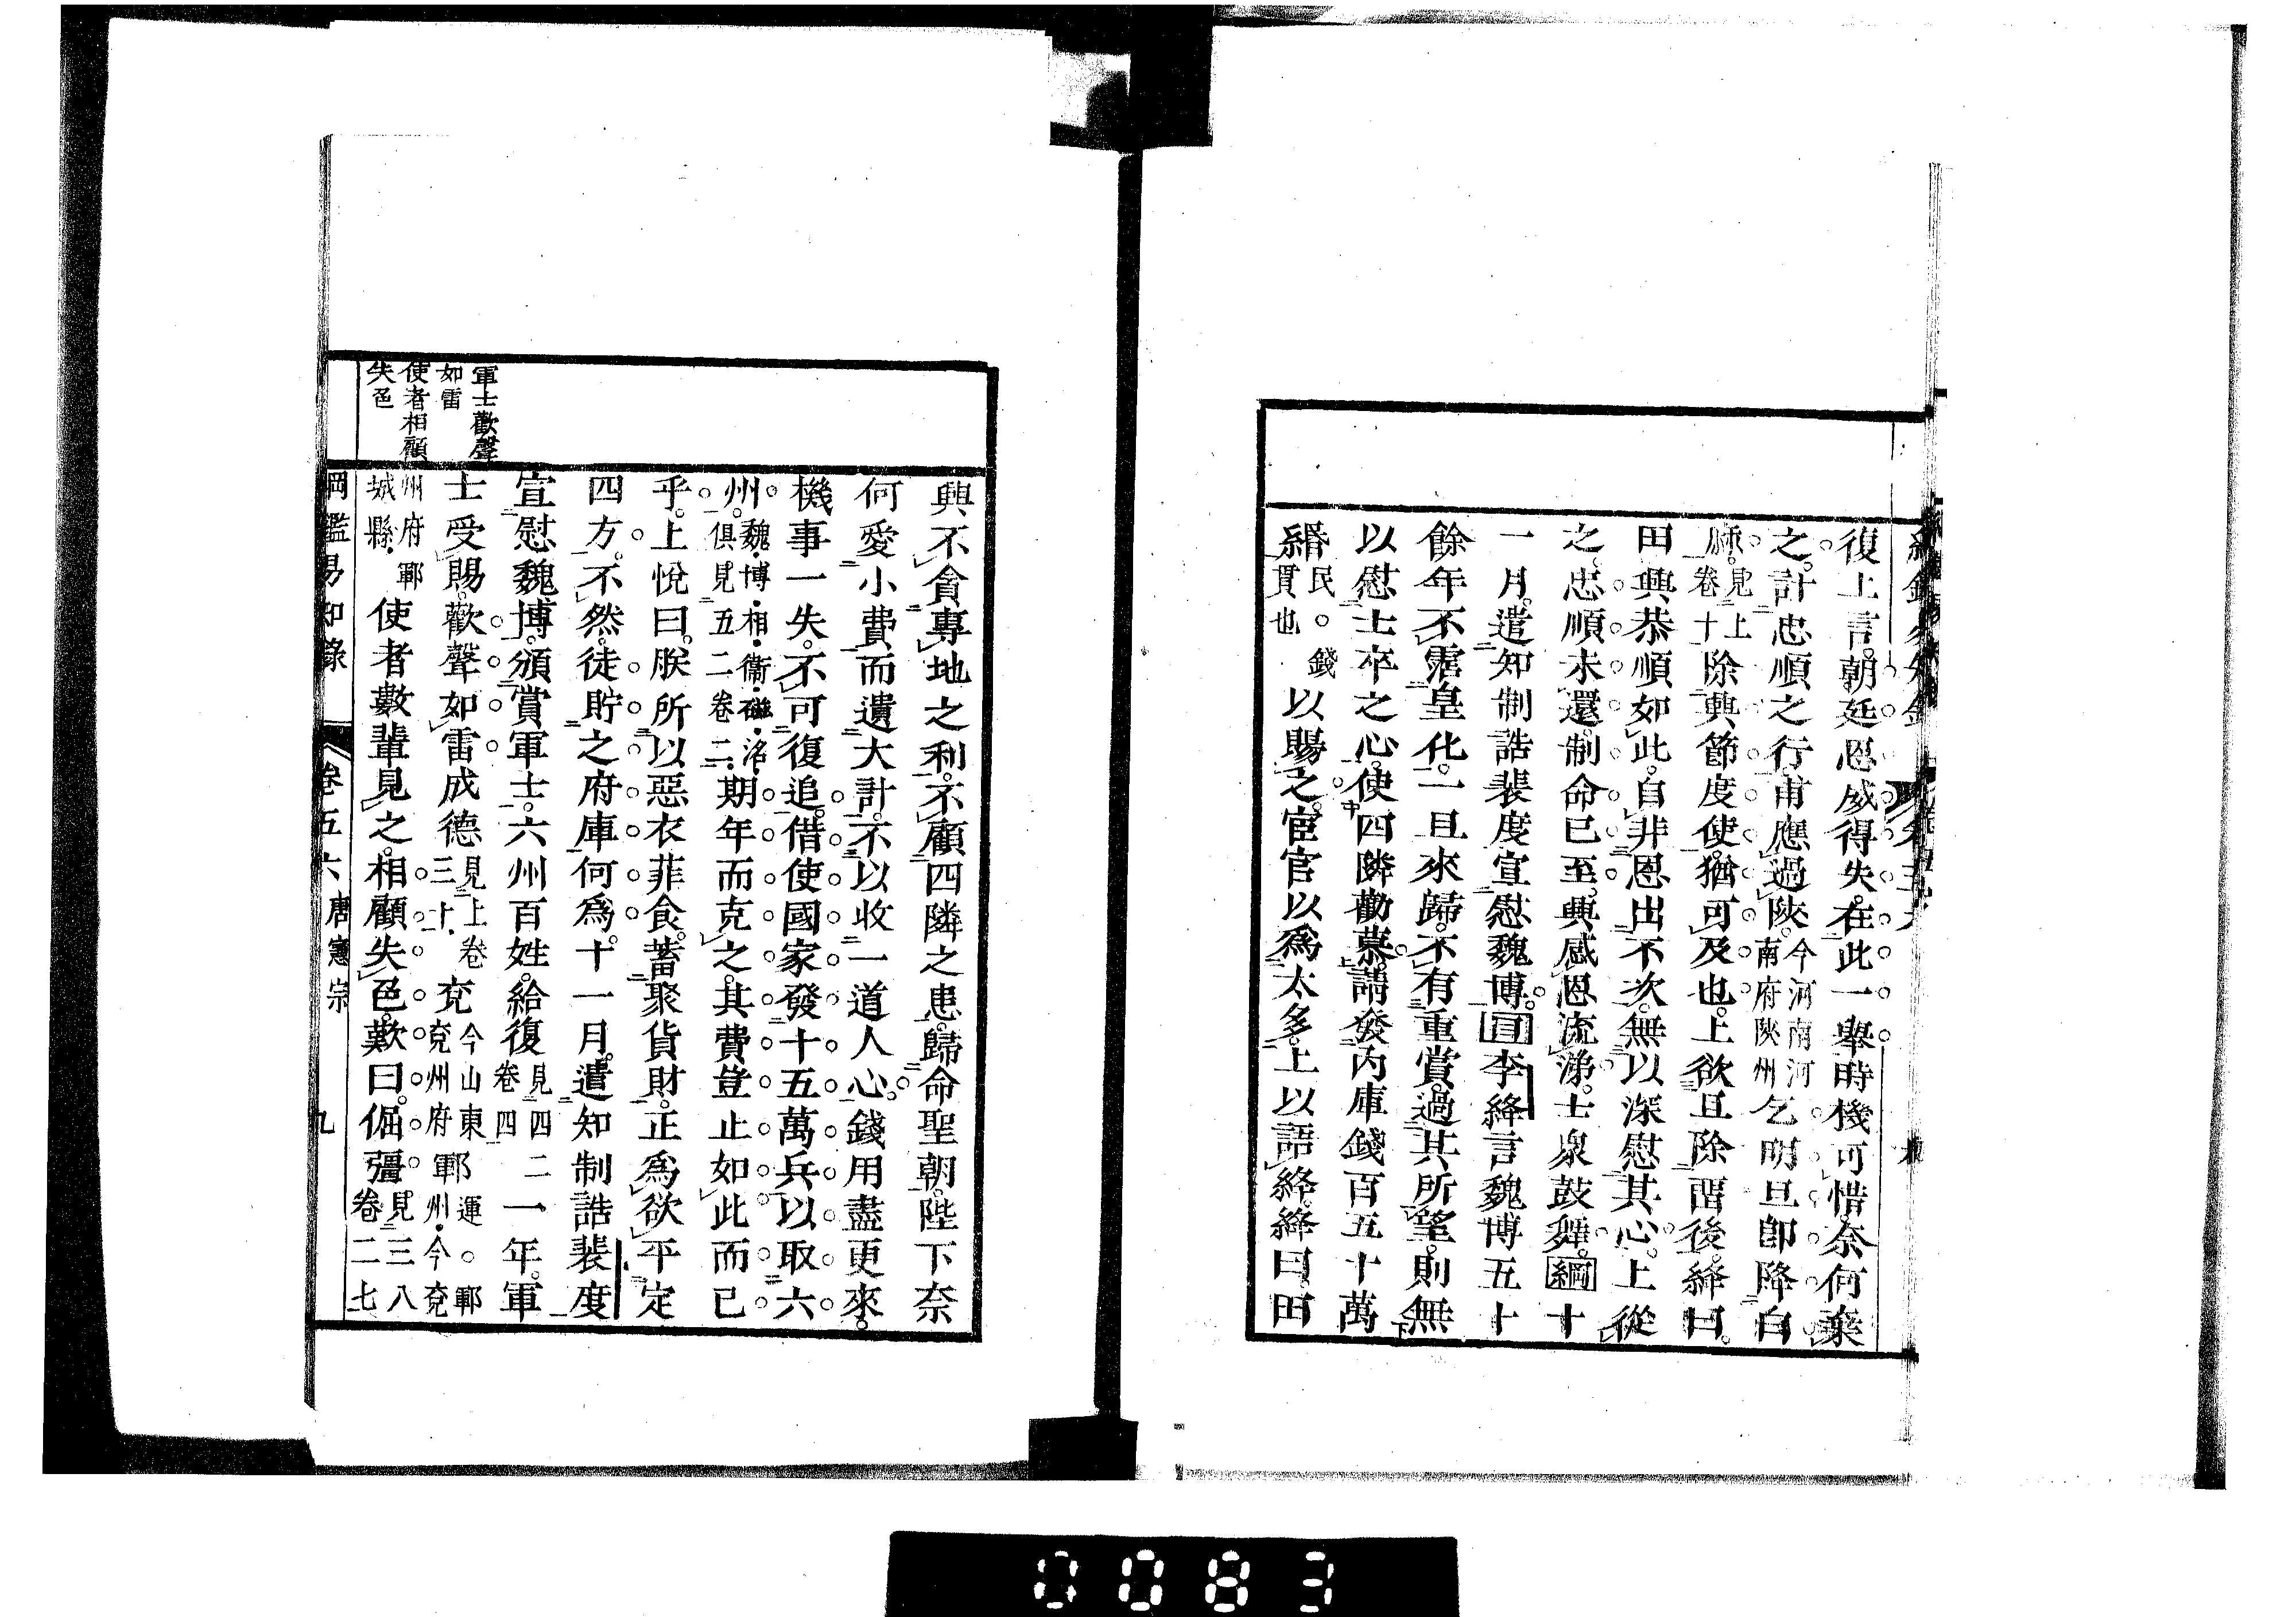 復上言朝廷恩威得失在此一舉時機可惜奈何棄
之計忠順之行甫應過陝今河南河南府陝州乞明旦卽降白
麻見上卷十除興節度使猶可及也上欲且除留後絳曰
田興恭順如此自非恩出不次無以深慰其心上從
之忠順未還制命已至興感恩流涕士衆鼓舞綱十
一月遣知制誥裴度宣慰魏博目李絳言魏博五十
餘年不霑皇化一旦來歸不有重賞過其所望則無
以慰士卒之心使四隣勸慕請發內庫錢百五十萬
緡民錢貫也以賜之宦官以爲太多上以語絳絳曰田
興不貪專地之利不顧四隣之患歸命聖朝陛下奈
何愛小費而遺大計不以收一道人心錢用盡更來
機事一失不可復追借使國家發十五萬兵以取六
州魏博相衞磁洺俱見五二卷二期年而克之其費豈止如此而已
乎上悅曰朕所以惡衣菲食蓄聚貨財正爲欲平定
四方不然徒貯之府庫何爲十一月遣知制誥裴度
宣慰魏博頒賞軍士六州百姓給復見四二卷四一年軍
士受賜歡聲如雷成德見上卷三十兗今山東運兗州府鄆鄆州今兗
州府鄆城縣使者數輩見之相顧失色歎曰倔彊見三八卷二七
軍士歡聲
如雷
使者相顧
失色
綱鑑易知錄 卷五六 唐憲宗 九
0083